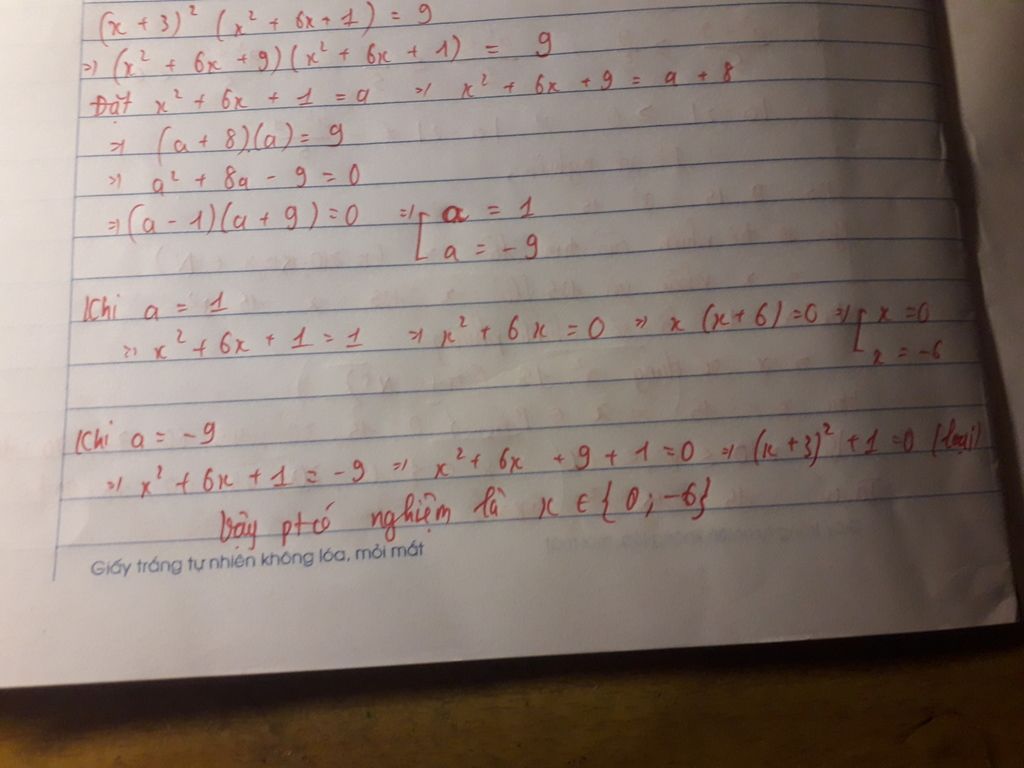 (x + 3)² (x² + 6x + 1) = 9
=> (x² + 6x + 9)(x² + 6x + 1) = 9
Đặt x² + 6x + 1 = a => x² + 6x + 9 = a + 8
=> (a + 8)(a) = 9
=> a² + 8a - 9 = 0
=> (a - 1)(a + 9) = 0 => [ a = 1
a = -9
Khi a = 1
=> x² + 6x + 1 = 1 => x² + 6x = 0 => x (x + 6) = 0 => [ x = 0
x = -6
Khi a = -9
=> x² + 6x + 1 = -9 => x² + 6x + 9 + 1 = 0 => (x + 3)² + 1 = 0 (loại)
Vậy pt có nghiệm là x ∈ {0; -6}
Giấy trắng tự nhiên không lóa, mỏi mắt